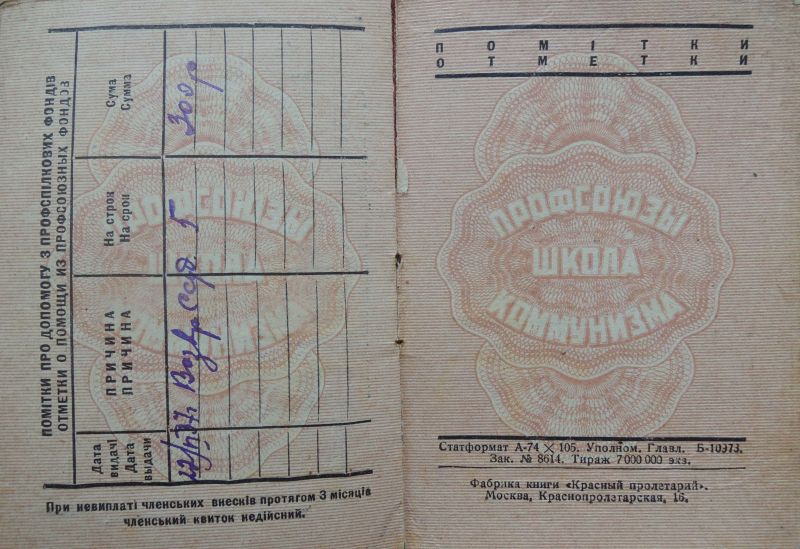 ПОМІТКИ ПРО ДОПОМОГУ З ПРОФСПІЛКОВИХ ФОНДІВ
ОТМЕТКИ О ПОМОЩИ ИЗ ПРОФСОЮЗНЫХ ФОНДОВ
Дата видачі
Дата выдачи
ПРИЧИНА
ПРИЧИНА
На строк
На срок
Сума
Сумма
300 р
При невиплаті членських внесків протягом 3 місяців
членський квиток недійсний.
ПРОФСОЮЗЫ
ШКОЛА
КОММУНИЗМА
ПОМІТКИ
ОТМЕТКИ
ПРОФСОЮЗЫ
ШКОЛА
КОММУНИЗМА
Статформат А-74 × 105. Уполном. Главл. Б-10373.
Зак. № 8614. Тираж 7 000 000 экз.
Фабрика книги «Красный пролетарий».
Москва, Краснопролетарская, 16.